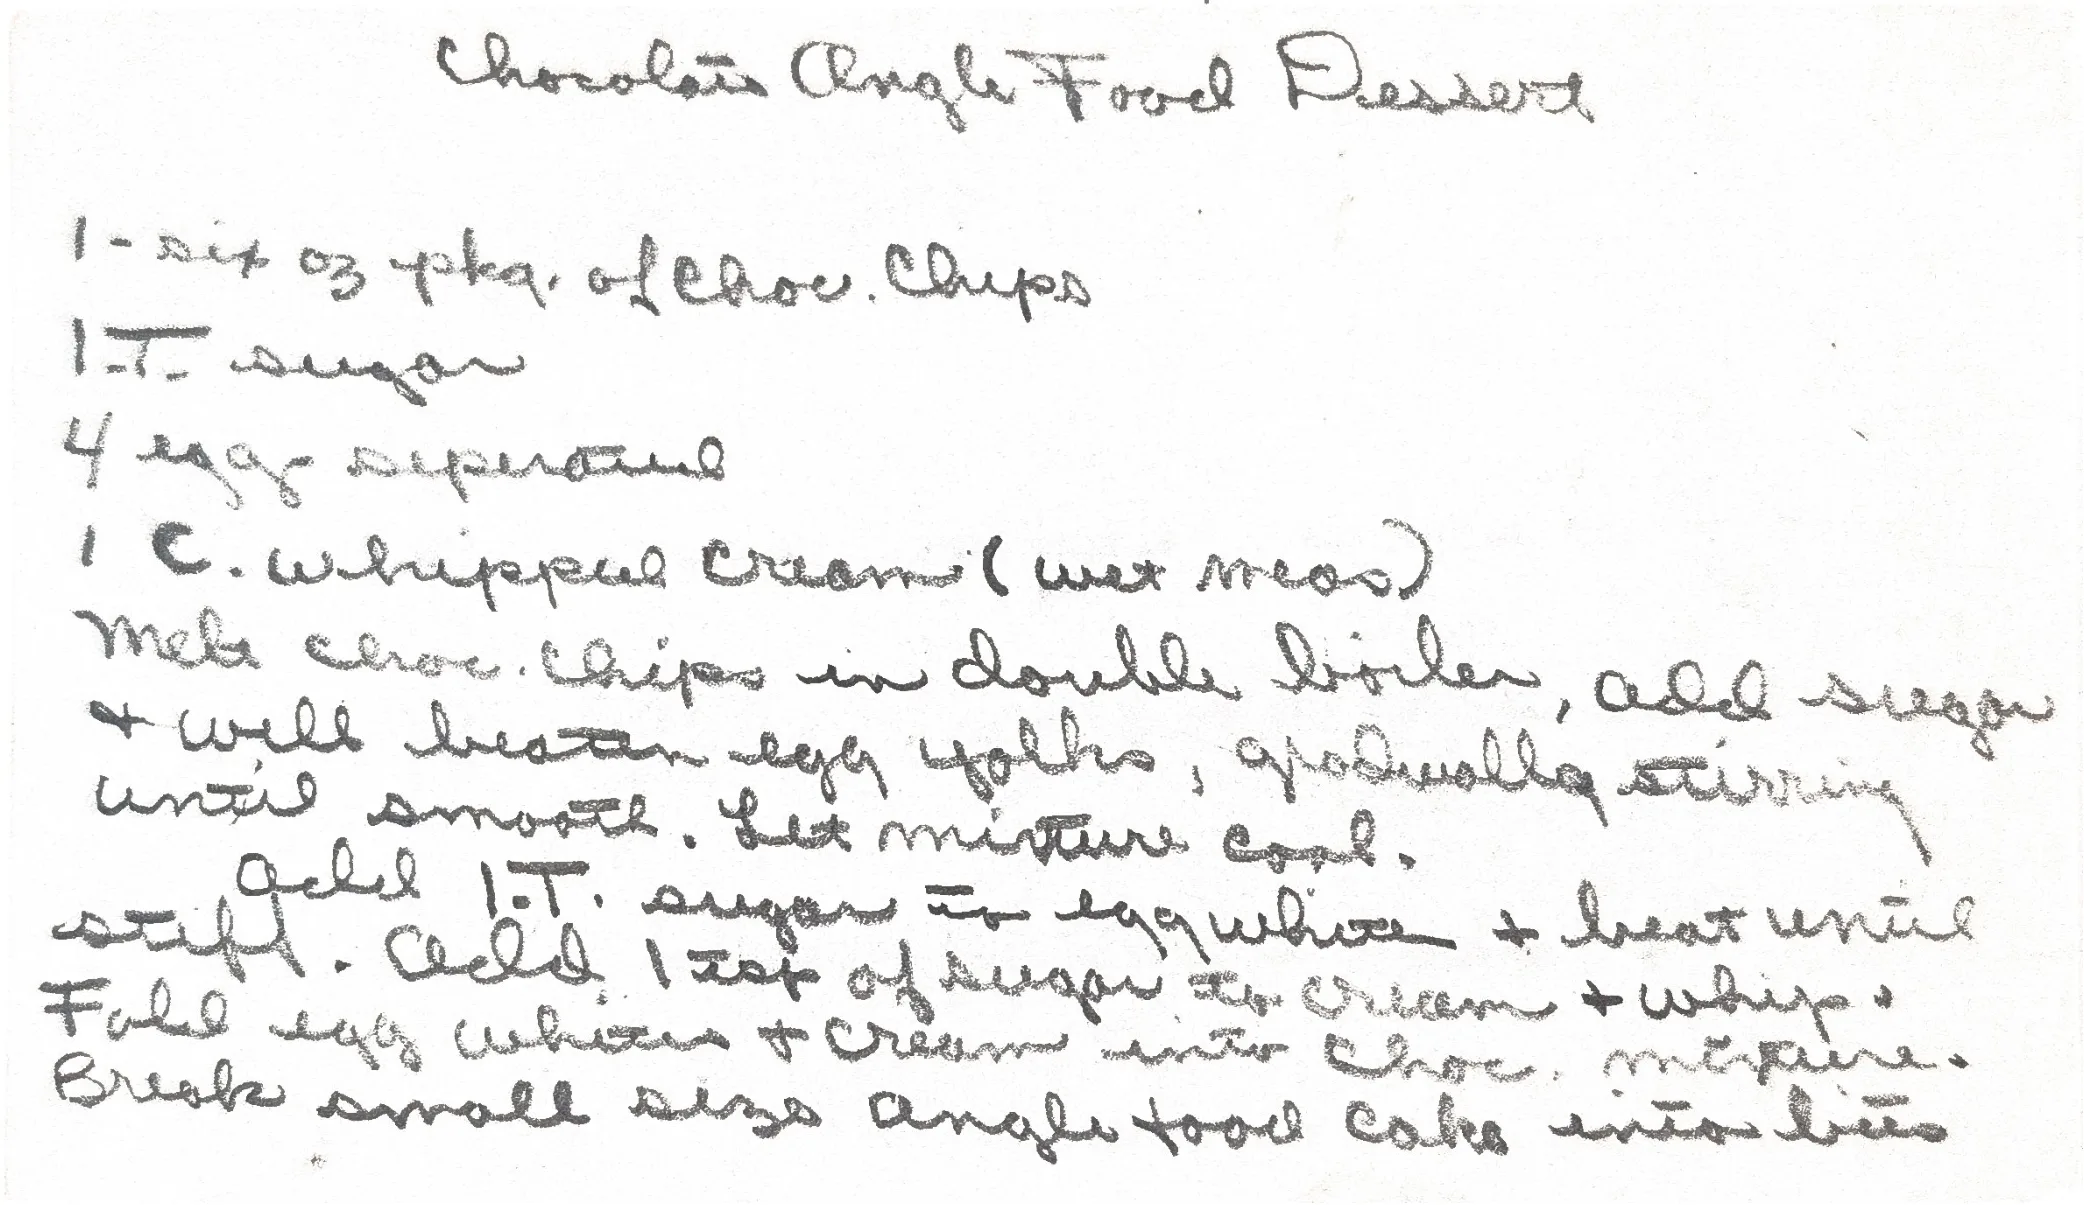 Chocolate Angle Food Dessert
1 - six oz pkg. of Choc. Chips
1.T. sugar
4 eggs seperated
1 C. whipped cream (wet meas)
Melt choc. chips in double boiler, add sugar
+ well beaten egg yolks, gradually stirring
until smooth. Let mixture cool.
add 1.T. sugar to egg white + beat until
stiff. Add 1 tsp of sugar to cream + whip.
Fold egg whites + cream into choc. mixture.
Break small size angle food cake into bits